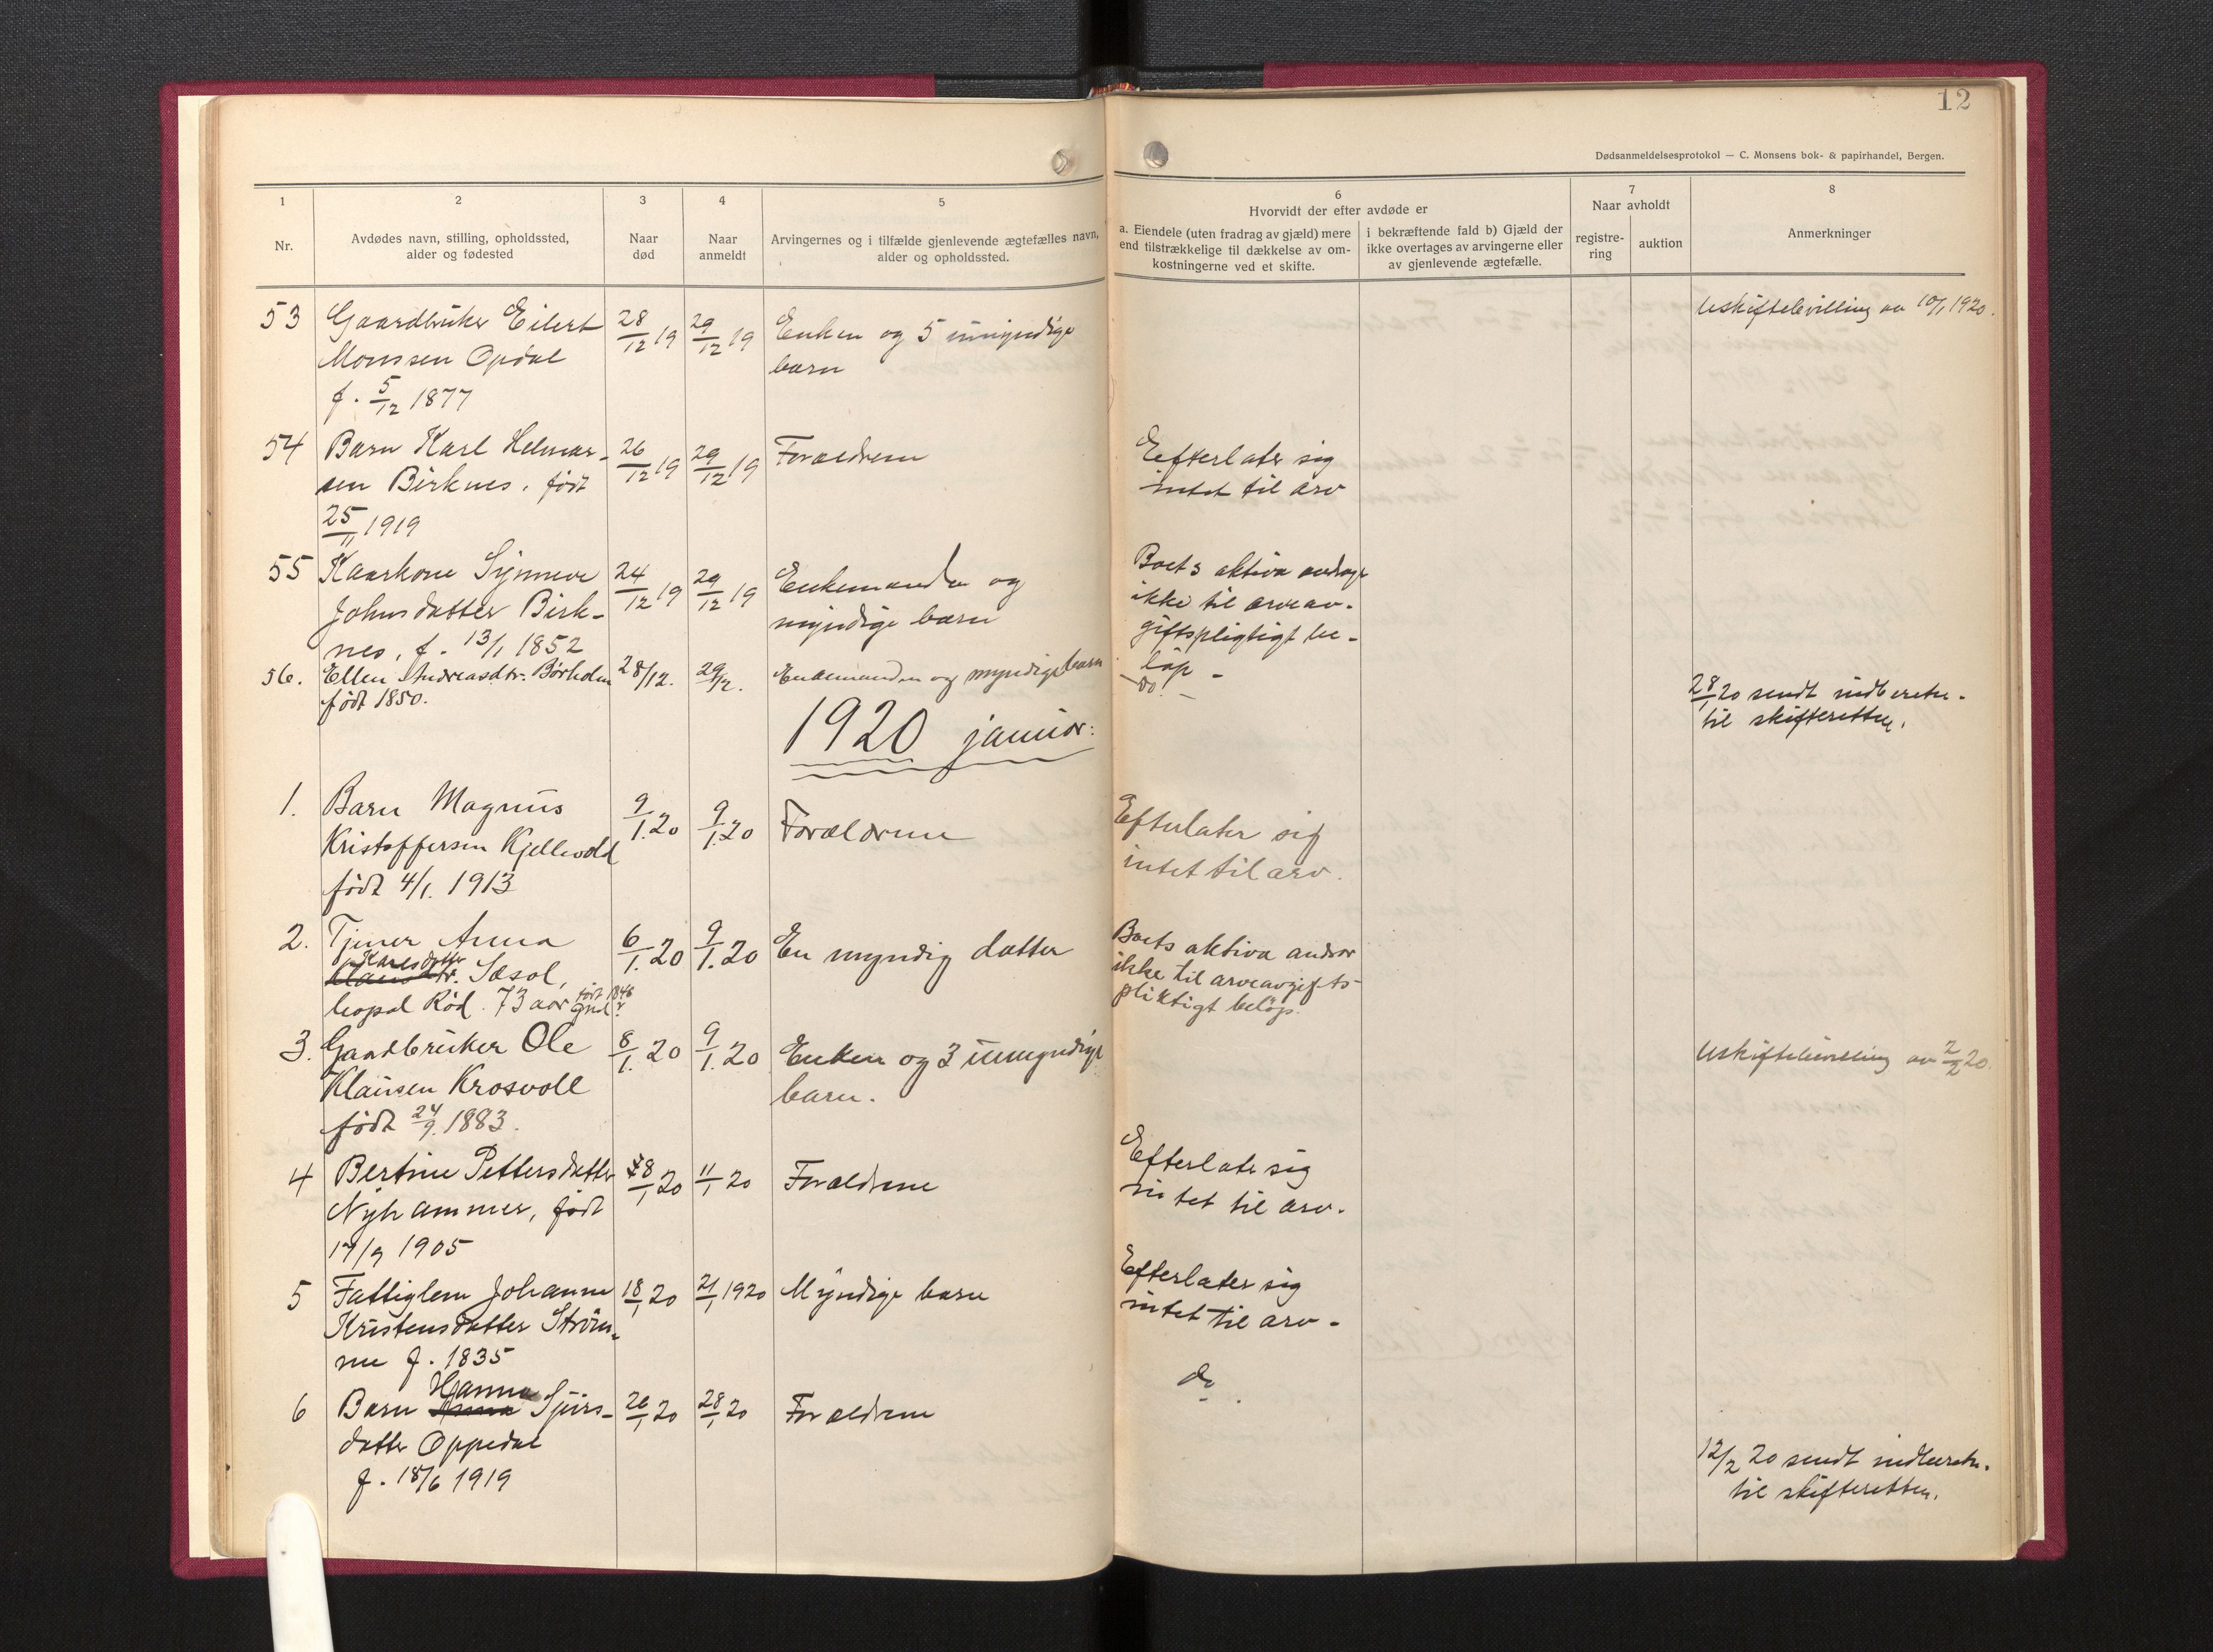 12
Dødsanmeldelsesprotokol — C. Monsens bok- & papirhandel, Bergen.
1 2 3 4 5
Nr.
Avdødes navn, stilling, opholdssted,
alder og fødested
Naar
død
Naar
anmeldt
Arvingernes og i tilfælde gjenlevende ægtefælles navn,
alder og opholdssted.
6
Hvorvidt der efter avdøde er
a. Eiendele (uten fradrag av gjæld) mere
end tilstrækkelige til dækkelse av om-
kostningerne ved et skifte.
i bekræftende fald b) Gjæld der
ikke overtages av arvingerne eller
av gjenlevende ægtefælle.
7
Naar avholdt
registre-
ring
auktion
8
Anmerkninger
53 Gaardbruker Eilert 28/12 19 29/12 19 Enken og 5 umyndige Uskiftebevilling av 10/1 1920.
Monssen Opdal barn
f. 5/12 1877
54 Barn Karl Helmer- 26/12 19 29/12 19 Forældrene Efterlater sig
sen Birknes, født intet til arv
25/11 1919
55 Kaarkone Synneve 24/12 19 29/12 19 Enkemanden og Boets aktiva andrager
Johnsdatter Birk- myndige barn ikke til arveav-
nes, f. 13/1 1852 giftspligtigt be-
løp -
56. Ellen Andreasdtr. Børholm 28/12. 29/12. Enkemanden og myndige barn - do. -
født 1850.
28/1 20 sendt indberetn.
til skifteretten.
1920 januar:
1. Barn Magnus 9/1. 20 9/1. 20 Forældrene Efterlater sig
Kristoffersen Kjellevold intet til arv.
født 4/1. 1913
2. Tjener Anna 6/1. 20 9/1. 20 En myndig datter Boets aktiva andrar
Karlsdatter
Sæsol, ikke til arveavgifts-
bopæl Rød. 73 aar født 1846 pliktigt beløp.
3. Gaardbruker Ole 8/1. 20 9/1. 20 Enken og 3 umyndige Uskiftebevilling av 2/2 20.
Klausen Krosvoll barn.
født 24/9. 1883.
4 Bertine Pettersdatter 8/1 20 11/1 20 Forældrene Efterlate sig
Nyhammer, født intet til arv.
17/9 1905
5 Fattiglem Johanne 18/1 20 21/1 1920 Myndige barn Efterlater sig
Kristensdatter Strøm- intet til arv -
me f. 1835
6 Barn Hanna Sjurs- 26/1 20 28/1 20 Forældrene do.
datter Oppedal
f. 18/6 1919
12/2 20 sendt indberetn.
til skifteretten.